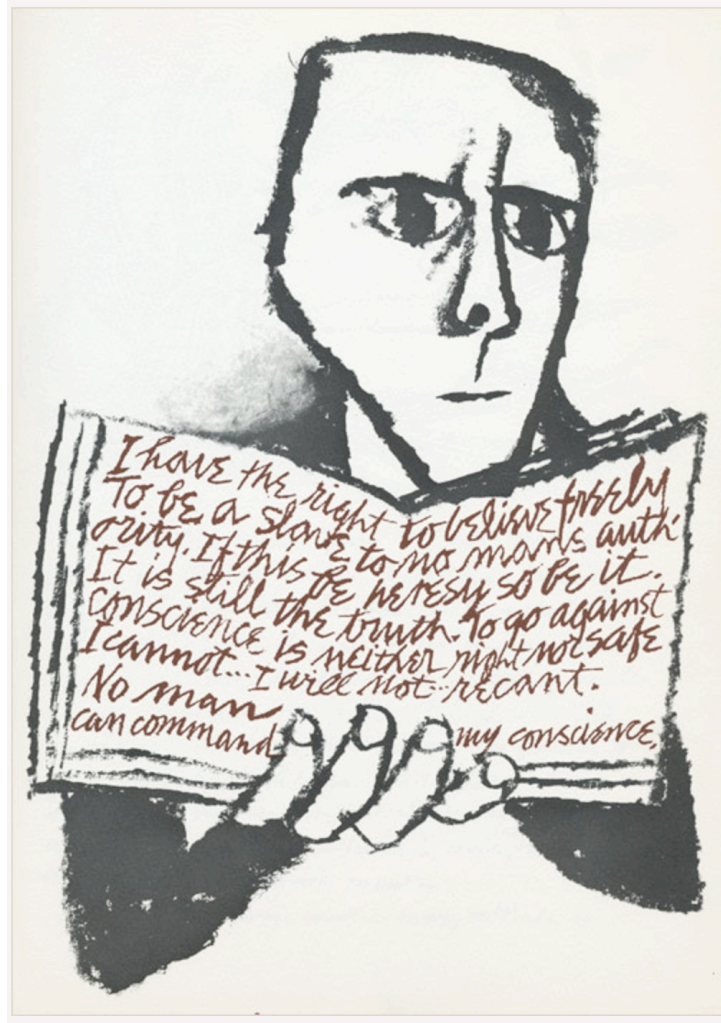 I have the right to believe freely
To be a slave to no man's auth-
ority. If this be heresy so be it.
It is still the truth. To go against
conscience is neither right nor safe
I cannot... I will not... recant.
No man
can command my conscience.